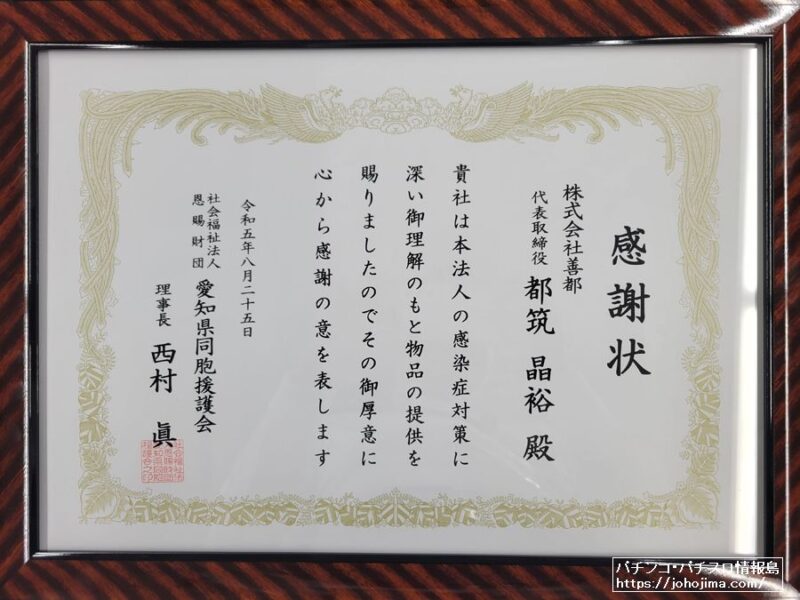 感謝状
株式会社善都
代表取締役 都筑 晶裕 殿
貴社は本法人の感染症対策に
深い御理解のもと物品の提供を
賜りましたのでその御厚意に
心から感謝の意を表します
令和五年八月二十五日
社会福祉法人
恩賜財団 愛知県同胞援護会
理事長 西村 眞
パチンコ・パチスロ情報島
https://johojima.com/